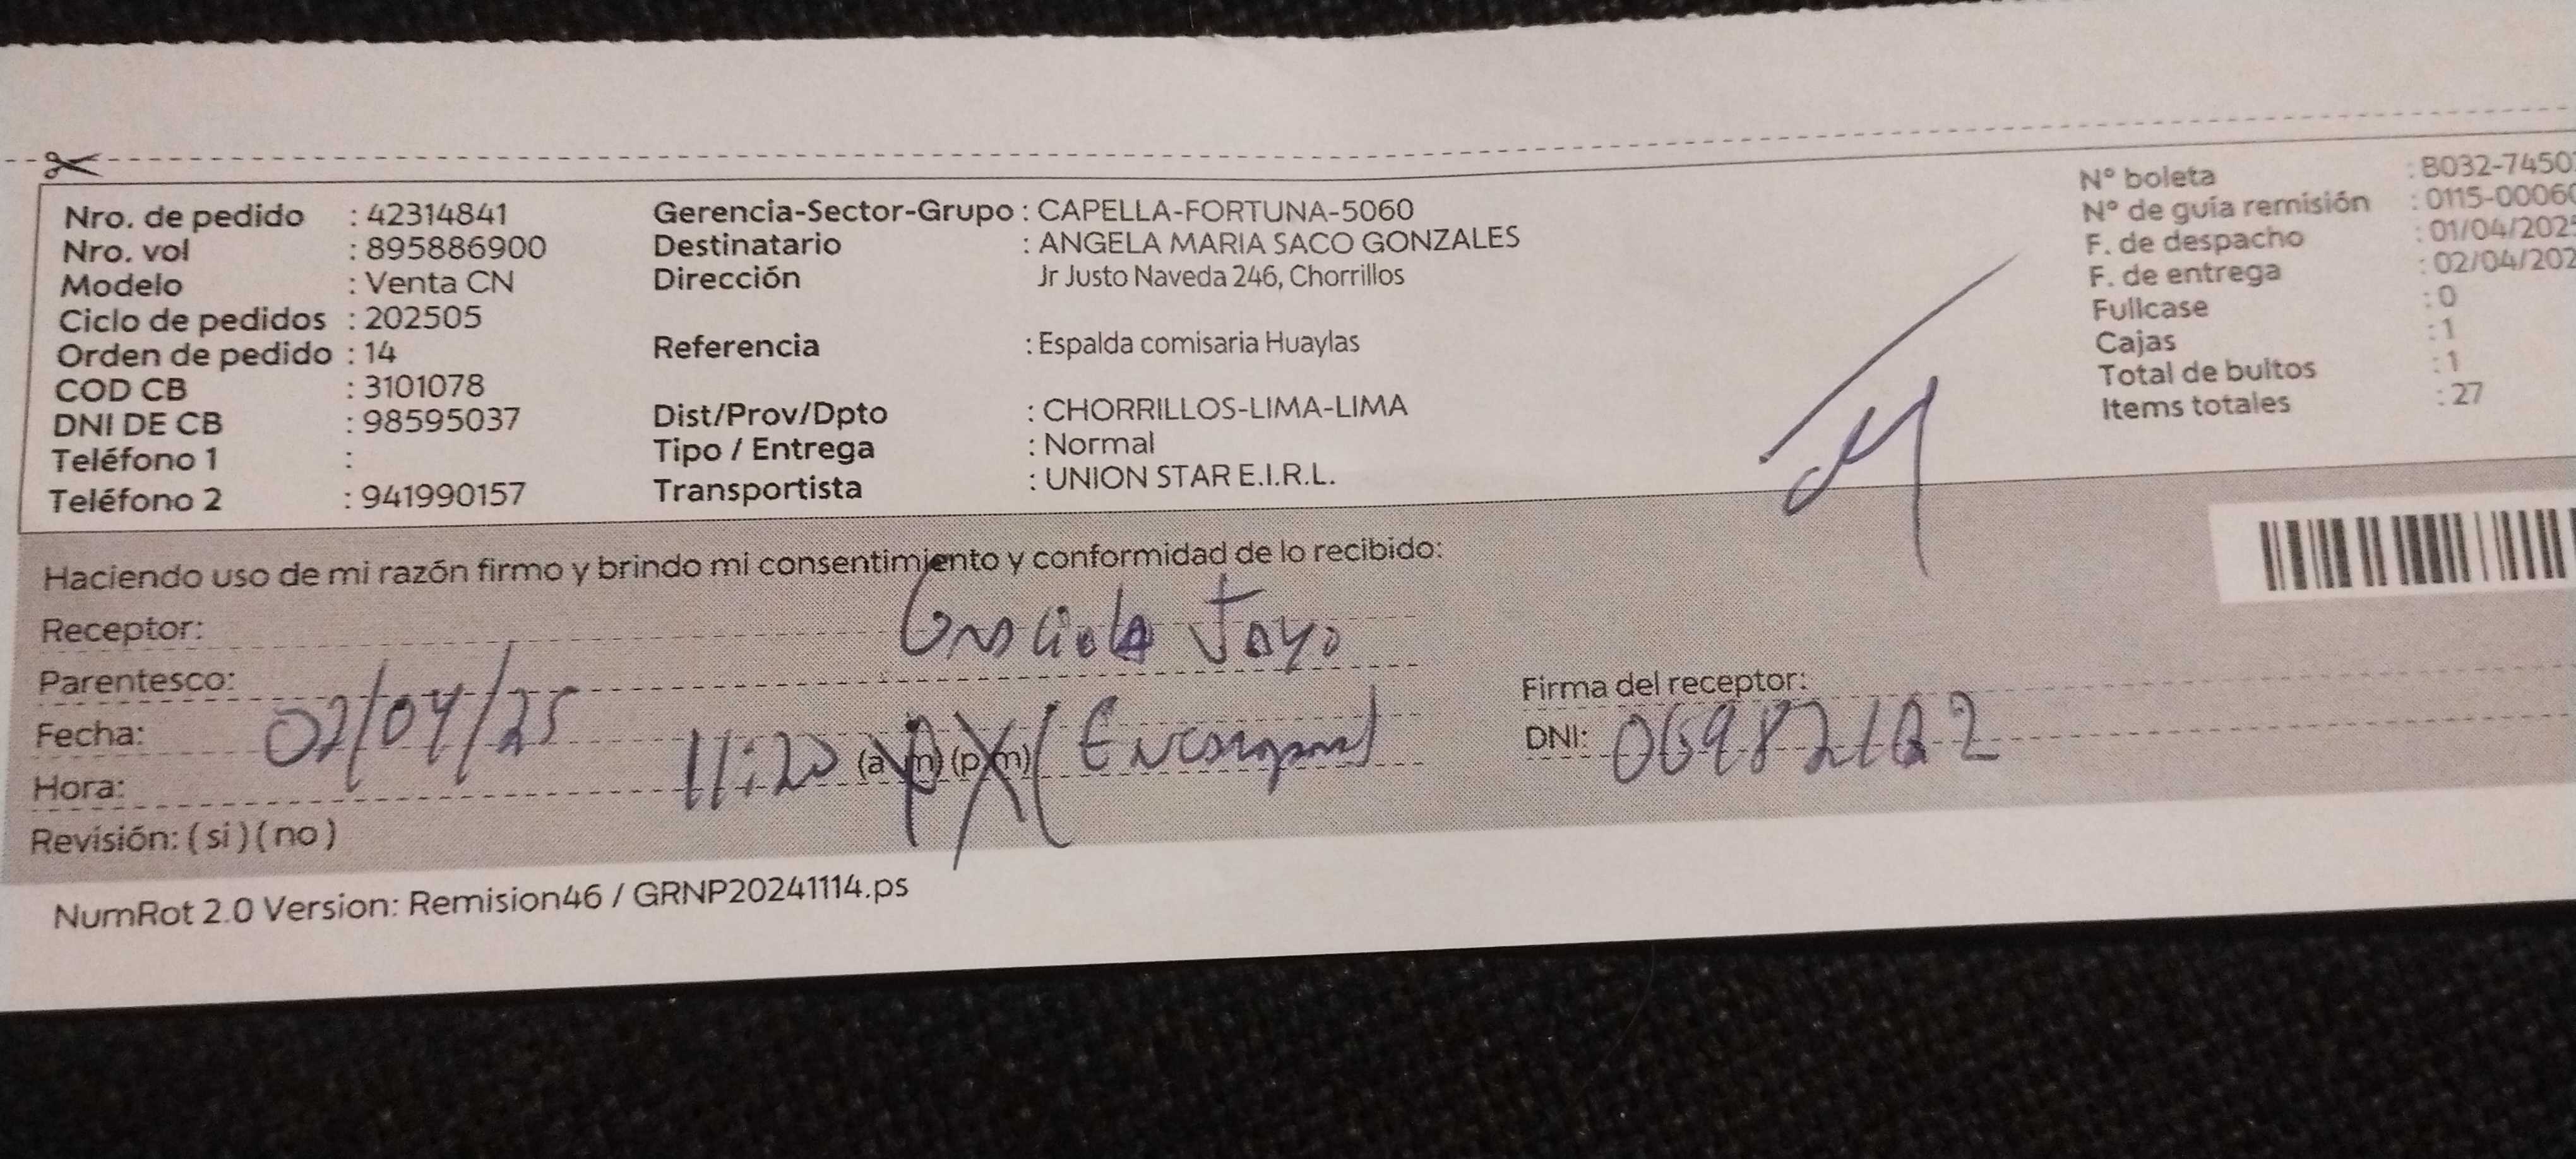 Nro. de pedido : 42314841
Nro. vol : 895886900
Modelo : Venta CN
Ciclo de pedidos : 202505
Orden de pedido : 14
COD CB : 3101078
DNI DE CB : 98595037
Teléfono 1 :
Teléfono 2 : 941990157
Gerencia-Sector-Grupo : CAPELLA-FORTUNA-5060
Destinatario : ANGELA MARIA SACO GONZALES
Dirección Jr Justo Naveda 246, Chorrillos
Referencia : Espalda comisaria Huaylas
Dist/Prov/Dpto : CHORRILLOS-LIMA-LIMA
Tipo / Entrega : Normal
Transportista : UNION STAR E.I.R.L.
N° boleta : B032-7450
N° de guía remisión : 0115-0006
F. de despacho : 01/04/202
F. de entrega : 02/04/202
Fullcase : 0
Cajas : 1
Total de bultos : 1
Items totales : 27
Haciendo uso de mi razón firmo y brindo mi consentimiento y conformidad de lo recibido:
Receptor: Graciela Jayo
Parentesco:
Fecha: 02/04/25
Hora: 11:20 (a m) (p m)
Revisión: ( si ) ( no )
Firma del receptor:
DNI:
NumRot 2.0 Version: Remision46 / GRNP20241114.ps